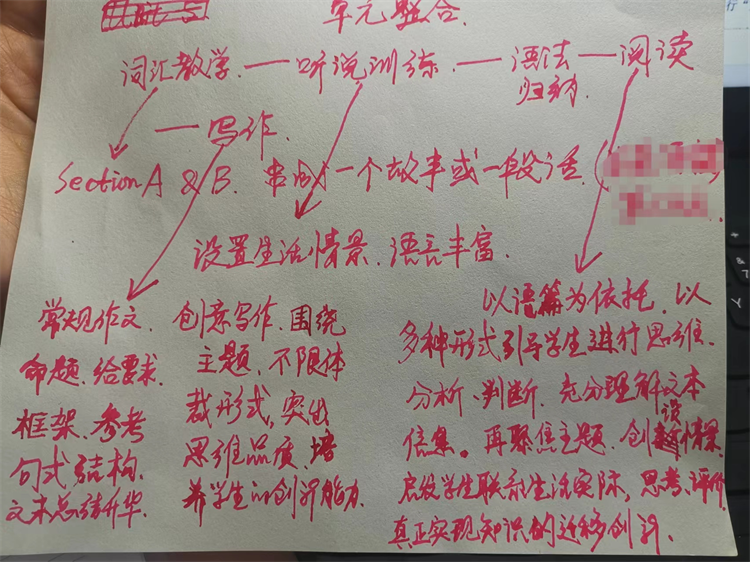 单元整合.
词汇教学 — 听说训练 — 语法归纳 — 阅读
— 写作.
Section A & B. 串成一个故事或一段话.
设置生活情景.语言丰富.
常规作文.
命题.给要求.
框架.参考
句式结构.
文末总结升华.
创意写作.围绕
主题,不限体
裁形式,突出
思维品质,培
养学生的创新能力.
以语篇为依托.以
多种形式引导学生进行思维.
分析、判断.充分理解文本
信息。再聚焦主题.创设情景.
启发学生联系生活实际,思考、评价,
真正实现知识的迁移创新.